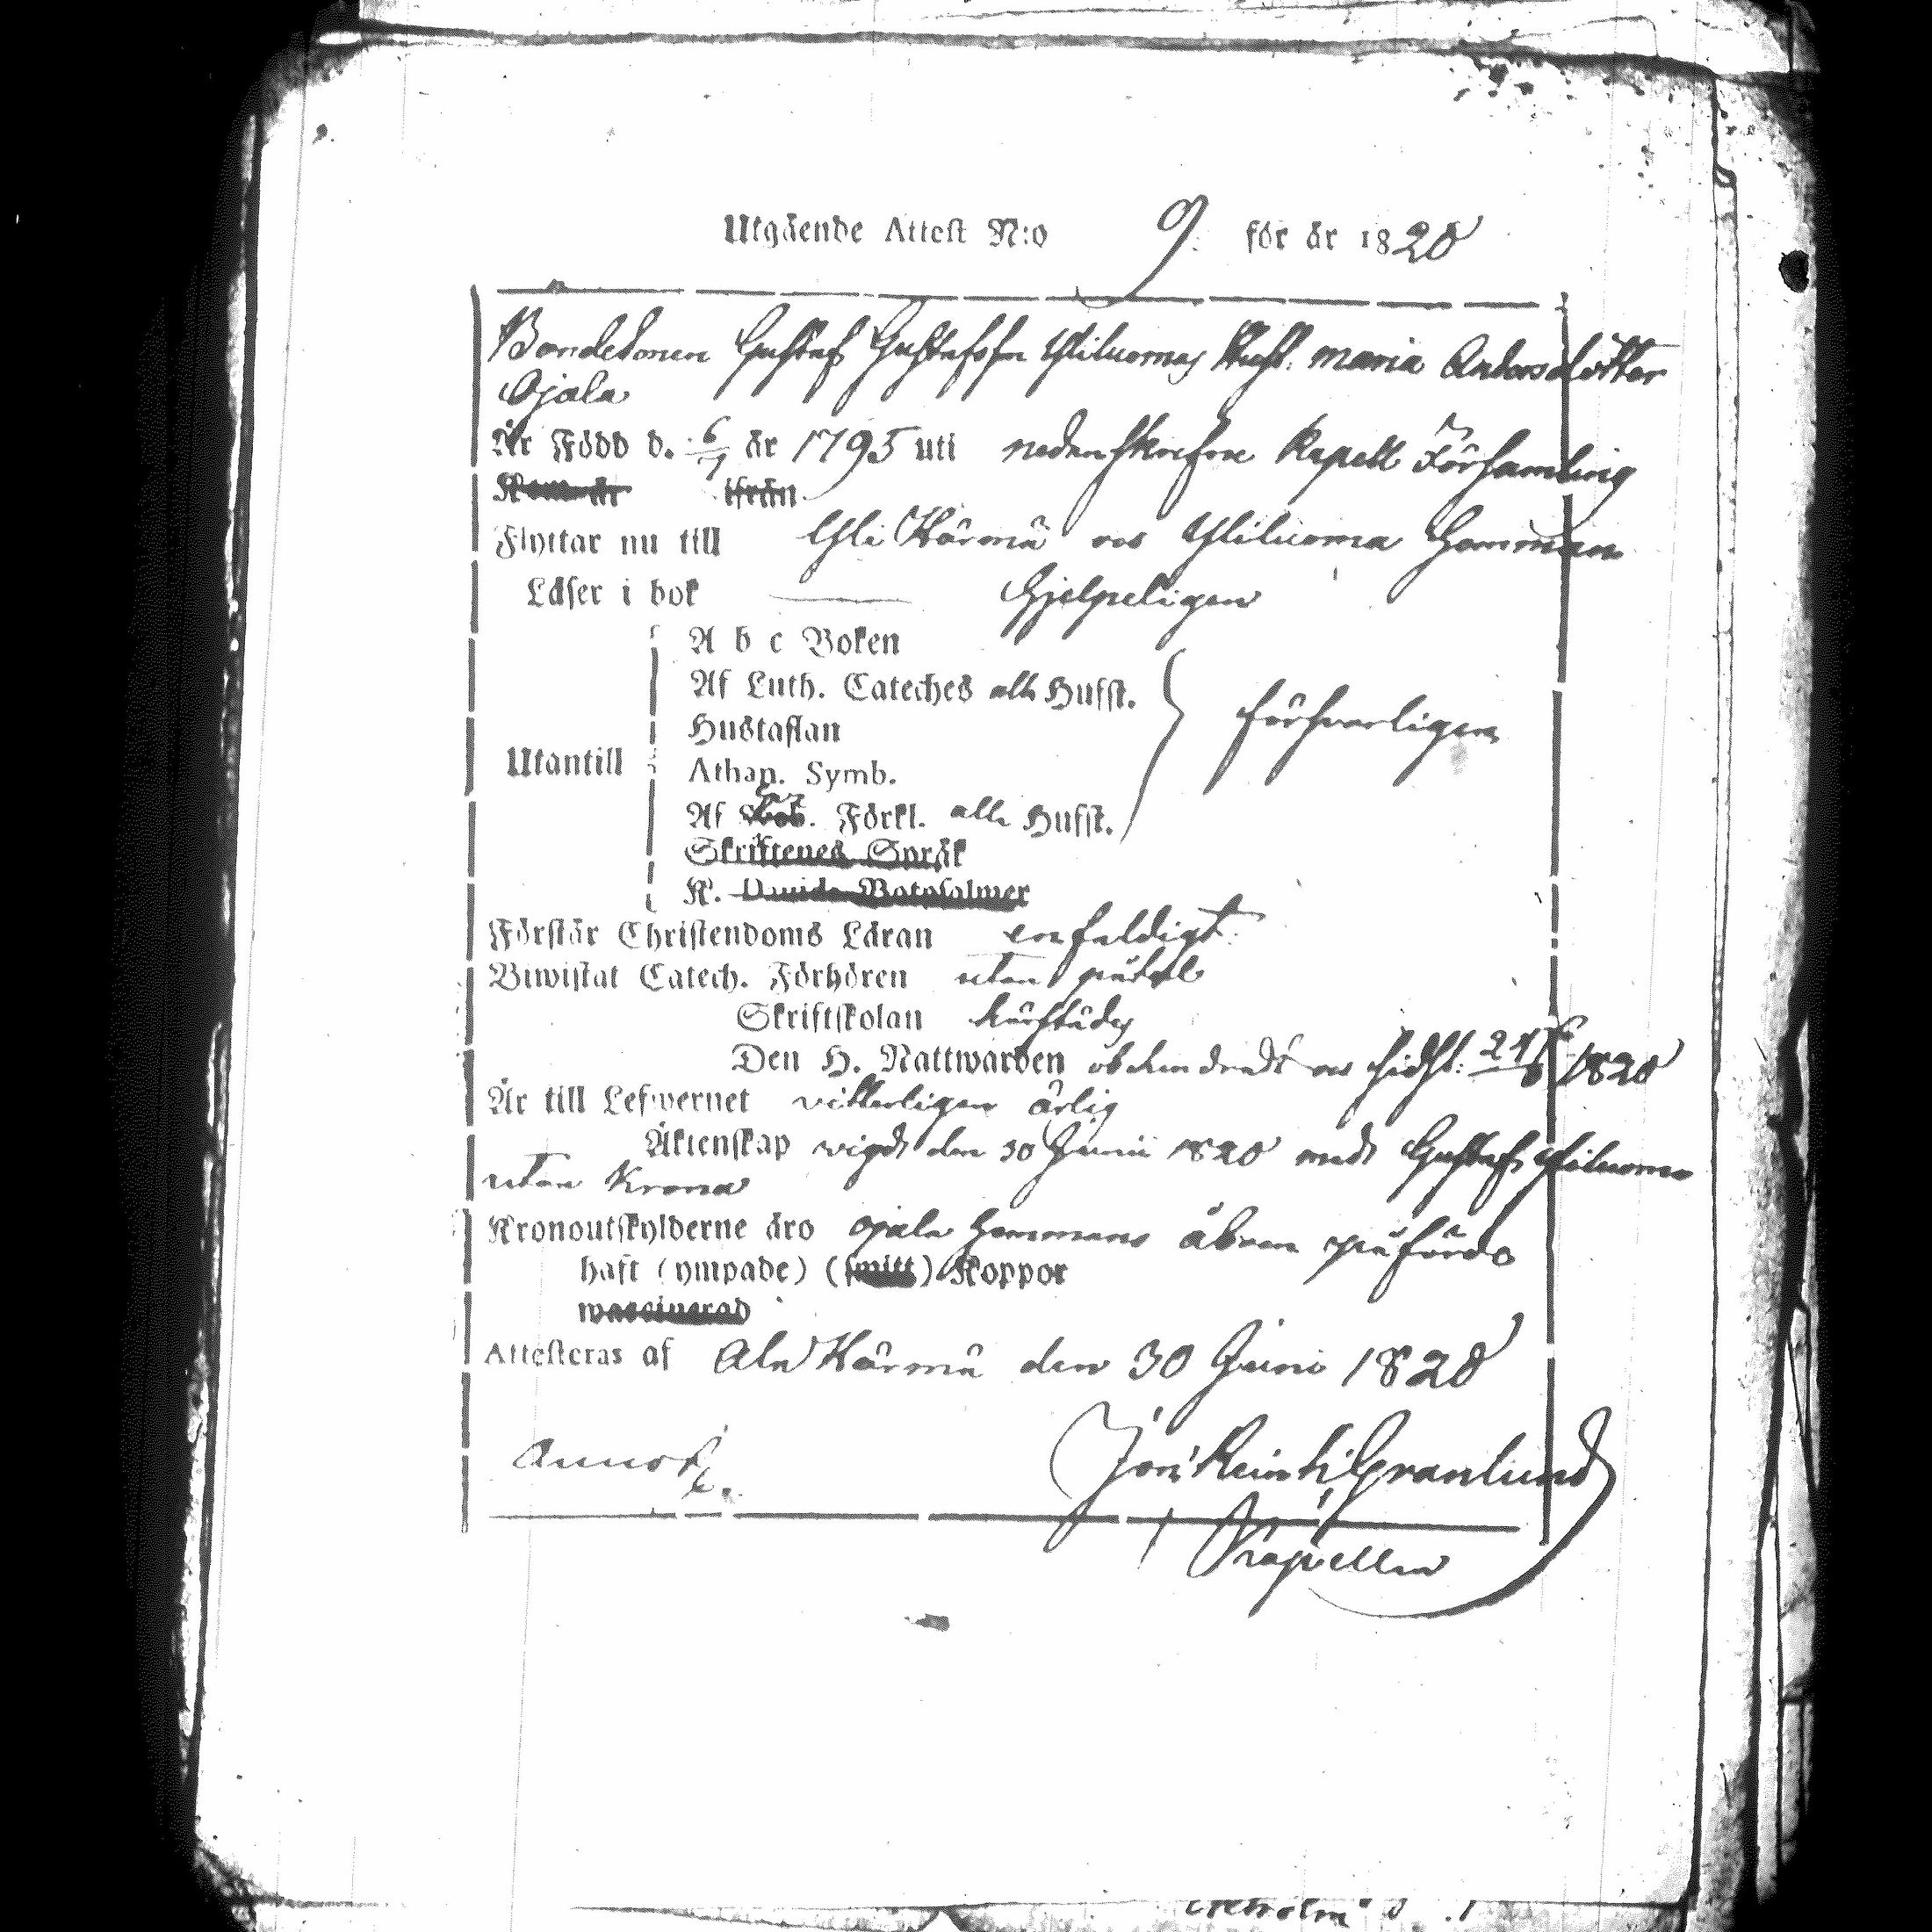 Utgående Attest N:o 9. för år 1820
Bondesonen Gustaf Gustafsson Yliluomas Hust. Maria Andersdotter
Ojala
Är Född d. 6/7 år 1795 uti nedanskrefne Kapell Församling
Kom år ifrån
Flyttar nu till Yli Härmä och Yliluoma Hemman
Läser i bok — Hjelpeligen
A b c Boken
Af Luth. Cateches alla Hufst. försvarligen
Hustaflan
Utantill
Athan. Symb.
Af Förkl. alla Hufst.
Skriftenes Språk
K. Davids Botpsalmer
Förstår Christendoms Läran enfaldigt
Biwistat Catech. Förhören utan påtal
Skriftskolan härstädes
Den H. Nattwarden obehindradt och sidst: 1820
Är till Lefwernet vitterligen ärlig
Äktenskap vigd den 30 Junii 1820 med Gustaf Yliluoma
utan Krona
Kronoutskylderne äro Ojala Hemmans åboen påförda
haft (ympade) (smitt) Koppor
waccinerad
Attesteras af Ala Härmä den 30 Juni 1820
Granlund
Kapellan